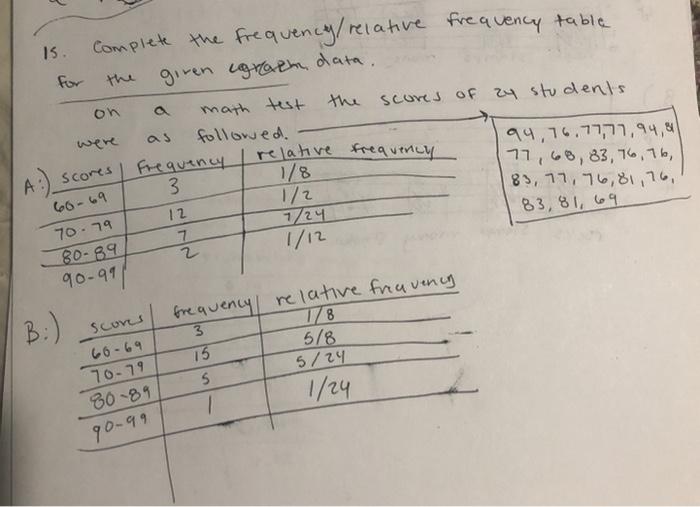 15. Complete the frequency/relative frequency table
for the given data.
on a math test the scores of 24 students
were as followed.
94, 76, 77, 77, 94, 81
77, 68, 83, 76, 76,
83, 77, 76, 81, 76,
83, 81, 69
A:) scores frequency relative frequency
60-69 3 1/8
70-79 12 1/2
80-89 7 7/24
90-99 2 1/12
B:) scores frequency relative frequency
60-69 3 1/8
70-79 15 5/8
80-89 5 5/24
90-99 1 1/24